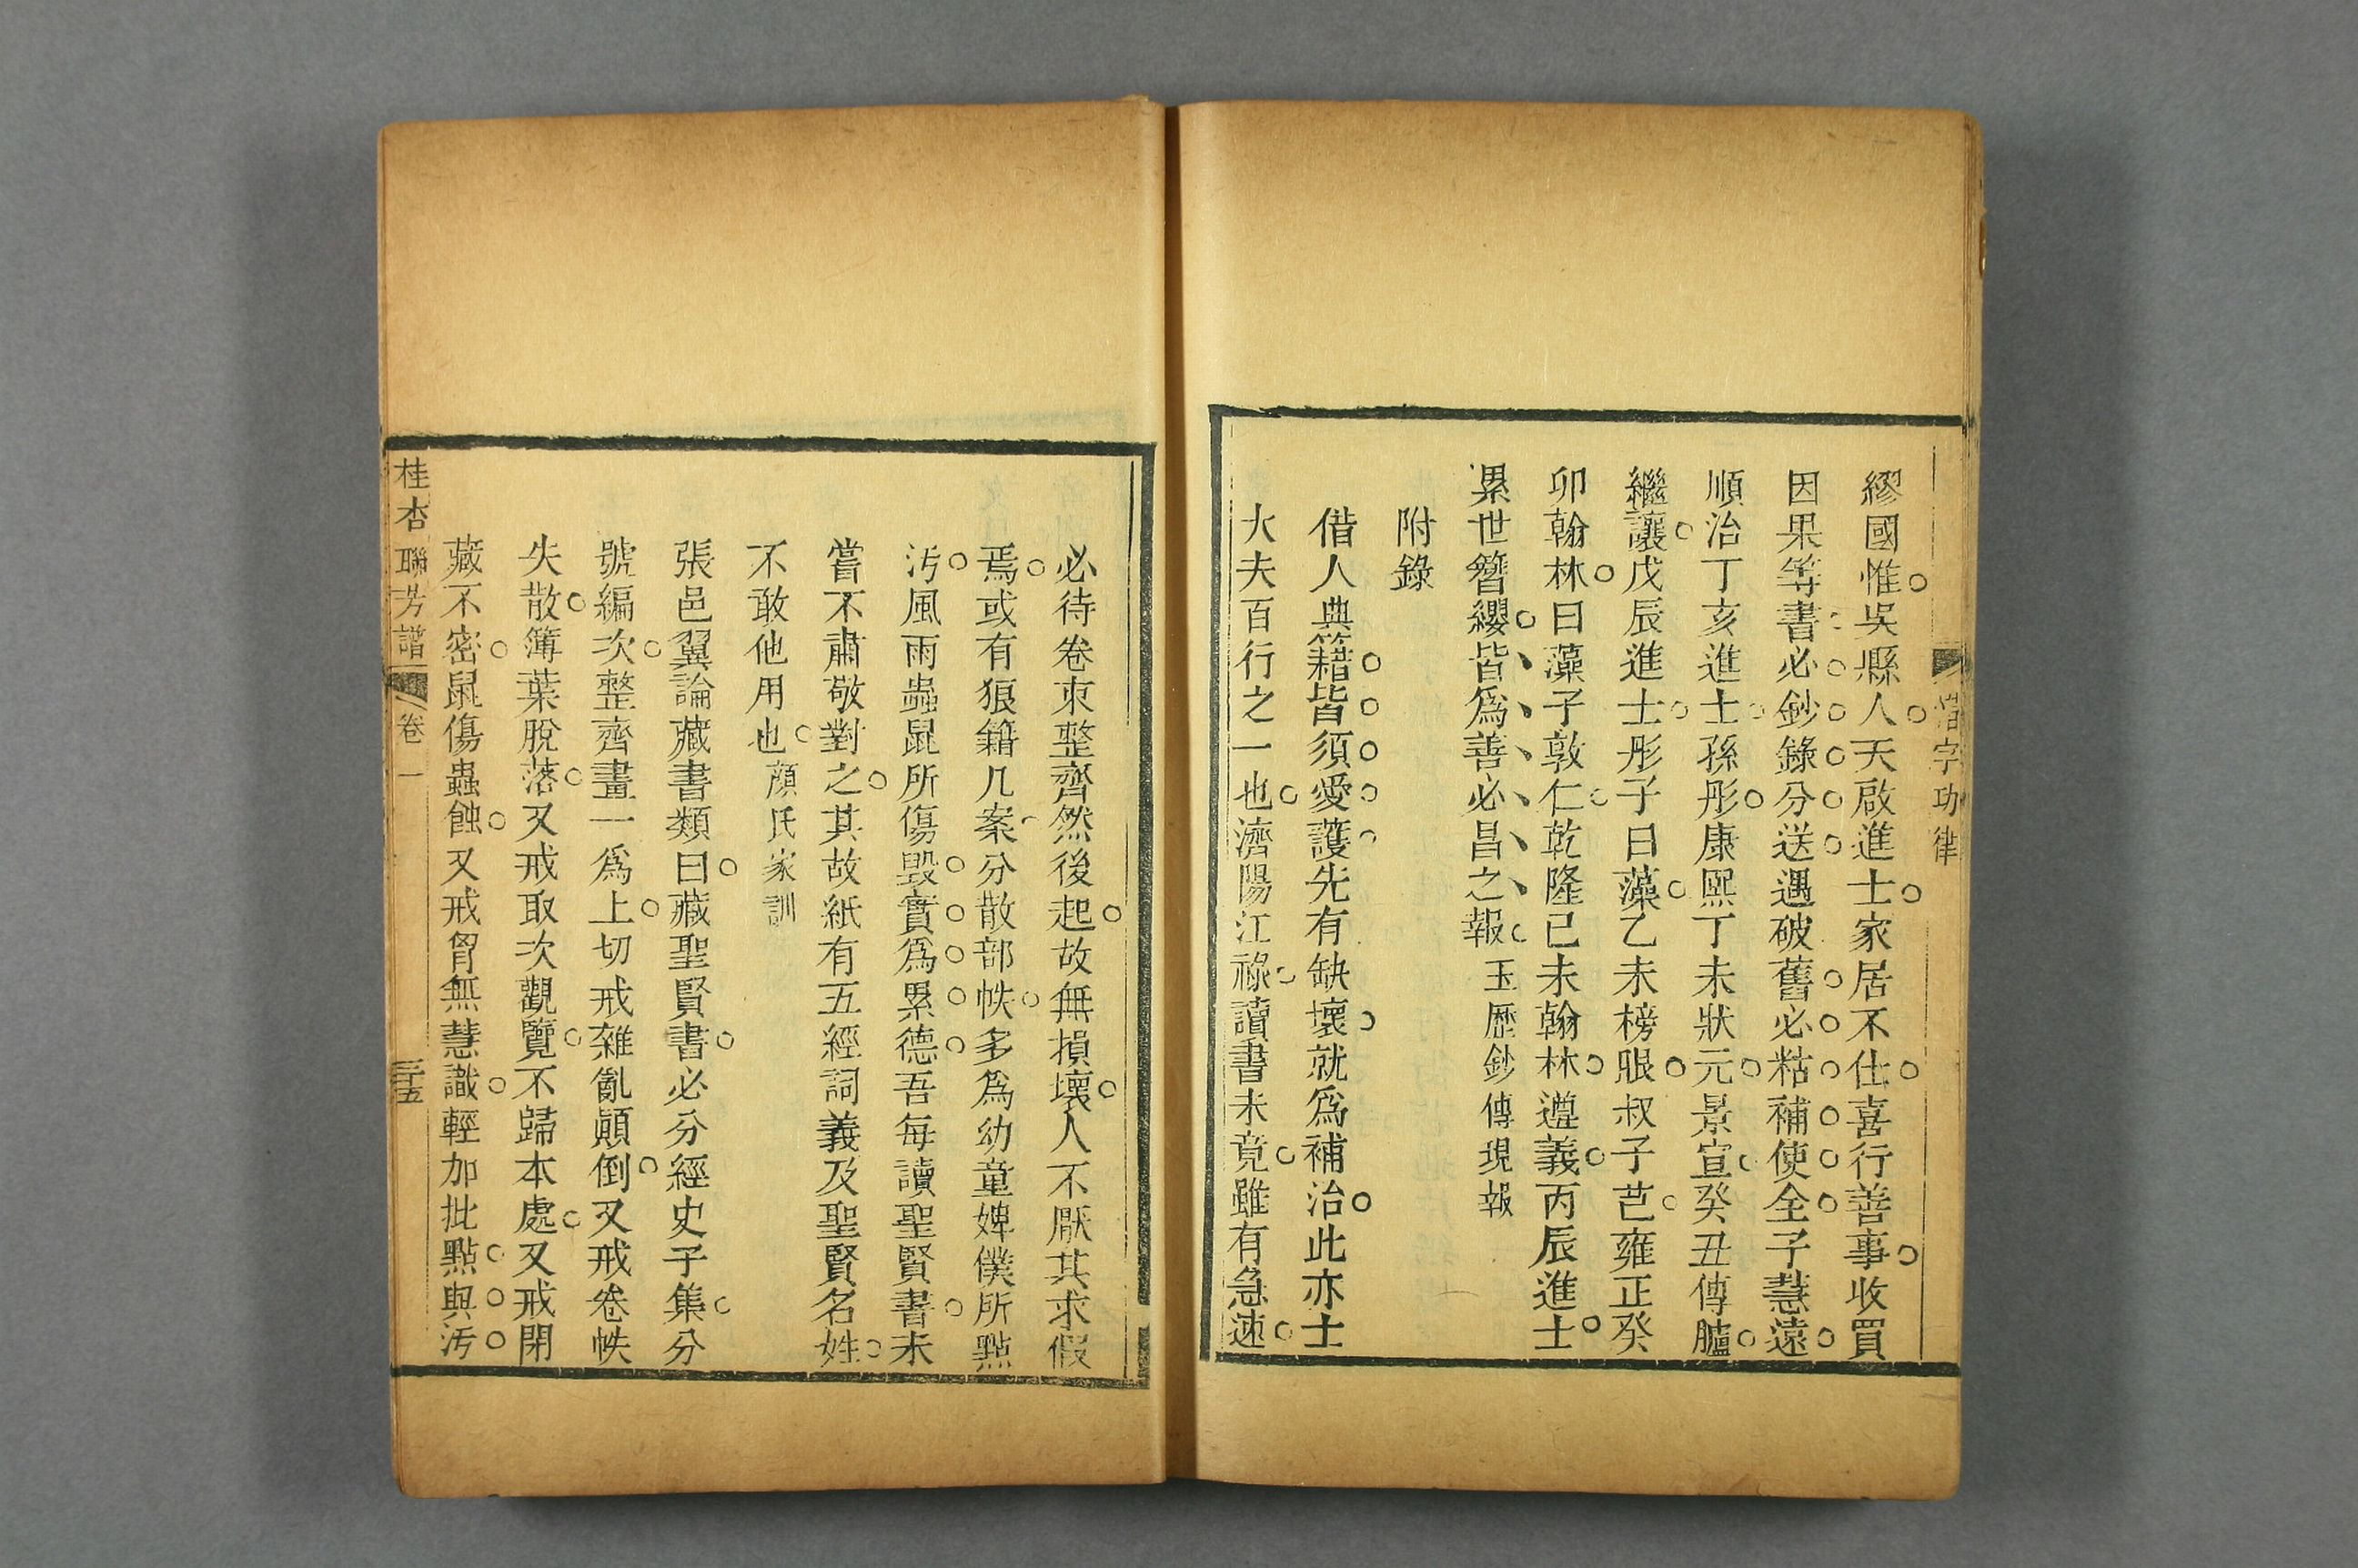 惜字功律
繆國惟吳縣人天啟進士家居不仕喜行善事收買
因果等書必鈔錄分送遇破舊必粘補使全子慧遠
順治丁亥進士孫彤康熙丁未狀元景宣癸丑傳臚
繼讓戊辰進士彤子曰藻乙未榜眼叔子芑雍正癸
卯翰林曰藻子敦仁乾隆己未翰林遵義丙辰進士
累世簪纓皆爲善必昌之報玉歷鈔傳現報
附錄
借人典籍皆須愛護先有缺壞就爲補治此亦士
大夫百行之一也濟陽江祿讀書未竟雖有急速
必待卷束整齊然後起故無損壞人不厭其求假
焉或有狼籍几案分散部帙多爲幼童婢僕所點
汚風雨蟲鼠所傷毀實爲累德吾每讀聖賢書未
嘗不肅敬對之其故紙有五經詞義及聖賢名姓
不敢他用也顏氏家訓
張邑翼論藏書類曰藏聖賢書必分經史子集分
號編次整齊畫一爲上切戒雜亂顚倒又戒卷帙
失散簿葉脫落又戒取次觀覽不歸本處又戒閉
藏不密鼠傷蟲蝕又戒胷無慧識輕加批點與汚
桂杏聯芳譜 卷一 三十五